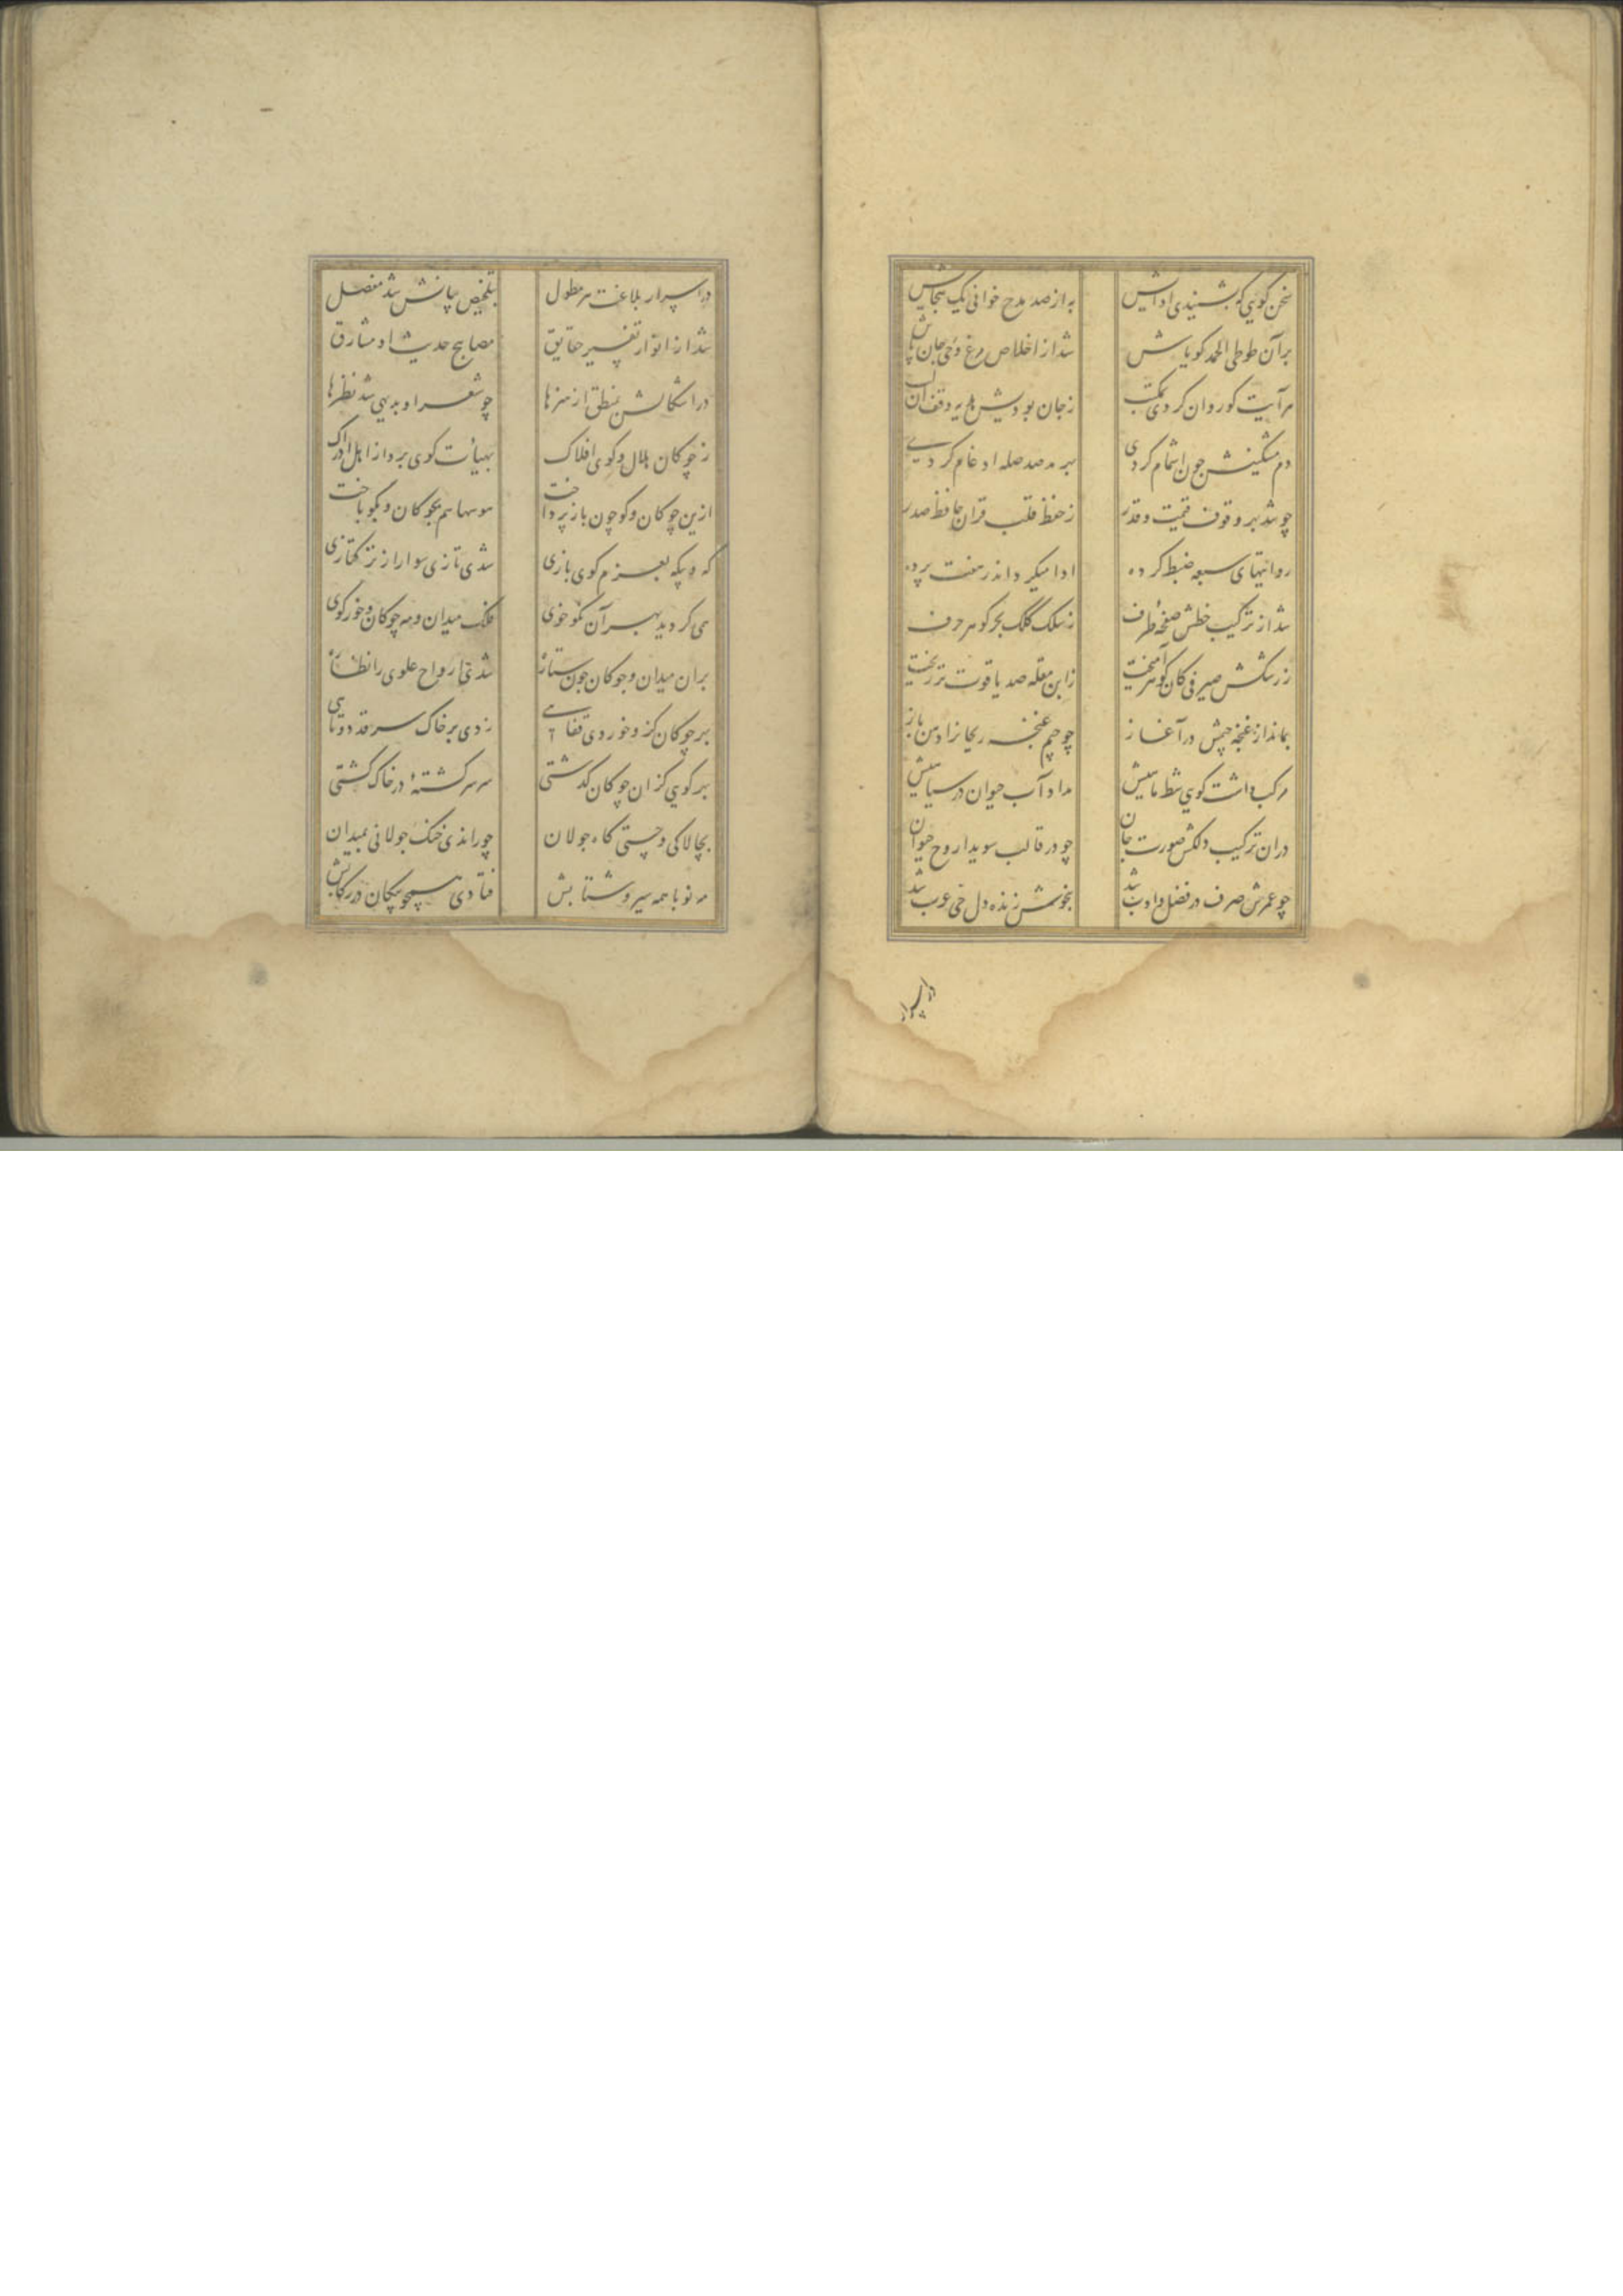 سخن کویی که بشنیدی اداییش به از صد مدح خوانی یک هجاییش
بر آن طوطی الحمد کویاش شد از اخلاص مرغ وحی جان پاش
هر آیت کو روان کردی بمکتب ز جان بودیش
دم مشکینش چون اشمام کردی بهر مد صد صله ادغام کردی
چو شد بر وقوف قیمت و قدر ز حفظ قلب قران حافظ صدر
روایتهای سبعه ضبط کرده ادا میکرد اندر هفت پرده
شد از ترکیب خطش صفحهٔ طرف ز سلک کلک بحر کوهر حرف
ز رشکش صیرفی کان کوهر آمیخت ز ابن مقله صد یاقوت تر ریخت
بماند از غنچه جیمش در آغاز چو جیم غنچه ریحانرا دهن باز
مرکب داشت کویی شط ماییش مداد آب حیوان در سیاهیش
در ان ترکیب دلکش صورت جان چو در قالب سویدا روح حیوان
چو عمرش صرف در فضل و ادب شد بنحوش زنده دل حی عرب شد
در اسرار
در اسرار بلاغت هر مطول بتلخیص بیانش شد مفصل
شد از انوار تفسیر حقایق مصابیح حدیث او مشارق
در اشکالش بمنطق از هنرها چو شعر او بدیهی شد نظرها
ز چوکان هلال و کوی افلاک بهیأت کوی برد از اهل ادراک
ازین چوکان و کو چون باز پرداخت هوسها هم بچوکان و بکو باخت
که و بیکه بعزم کوی بازی شدی تازی سوار از ترکتازی
همی کردید بهر آن نکو خوی فلک میدان و مه چوکان و خور کوی
بران میدان و چوکان چون ستاره شدی ارواح علوی را نظاره
بهر چوکان کز و خوردی قفایی زدی بر خاک سر قد دوتایی
بهر کویی کز ان چوکان کذشتی سر سرکشتهٔ در خاک کشتی
بچالاکی و چستی کاه جولان چو راندی خنک جولانی بمیدان
مه نو با همه سیر و شتابش فتادی همچو پیکان در رکابش